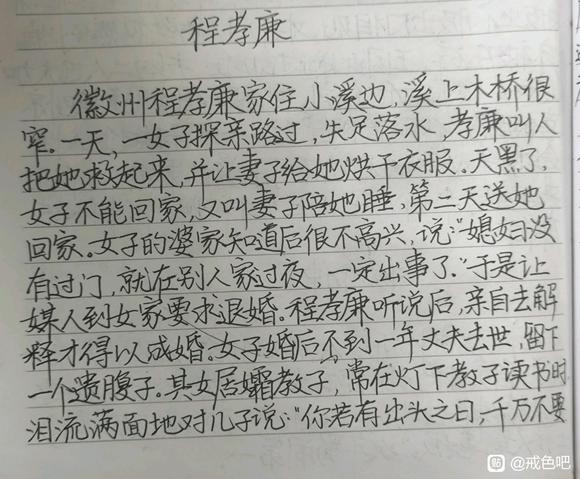 程孝廉
徽州程孝廉家住小溪边,溪上木桥很
窄。一天,一女子探亲路过,失足落水,孝廉叫人
把她救起来,并让妻子给她烘干衣服。天黑了,
女子不能回家,又叫妻子陪她睡,第二天送她
回家。女子的婆家知道后很不高兴,说:“媳妇没
有过门,就在别人家过夜,一定出事了。”于是让
媒人到女家要求退婚。程孝廉听说后,亲自去解
释才得以成婚。女子婚后不到一年丈夫去世,留下
一个遗腹子。其女居孀教子,常在灯下教子读书时,
泪流满面地对儿子说:“你若有出头之日,千万不要
贴 @戒色吧